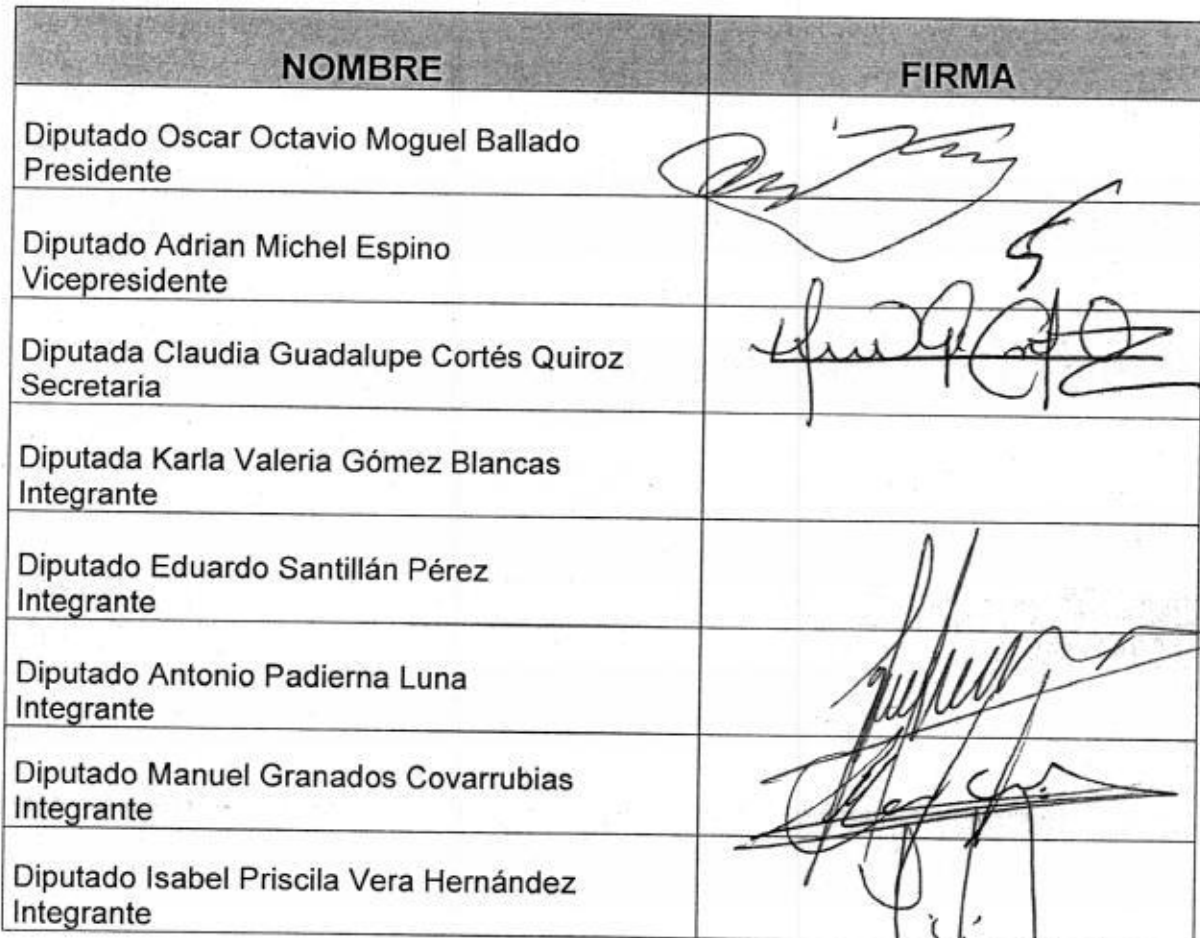 NOMBRE FIRMA
Diputado Oscar Octavio Moguel Ballado
Presidente
Diputado Adrian Michel Espino
Vicepresidente
Diputada Claudia Guadalupe Cortés Quiroz
Secretaria
Diputada Karla Valeria Gómez Blancas
Integrante
Diputado Eduardo Santillán Pérez
Integrante
Diputado Antonio Padierna Luna
Integrante
Diputado Manuel Granados Covarrubias
Integrante
Diputado Isabel Priscila Vera Hernández
Integrante